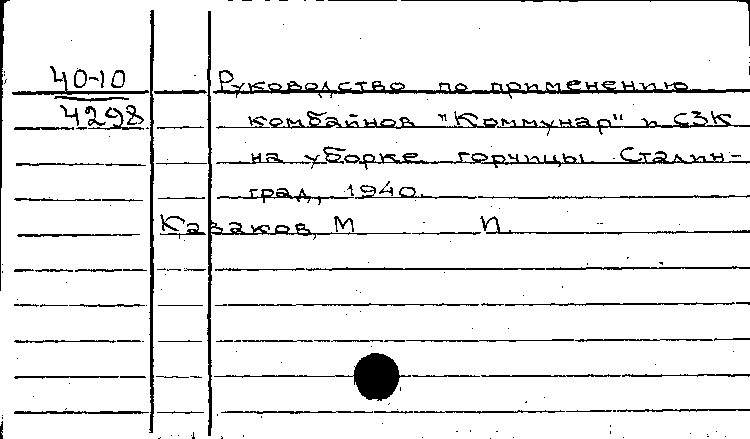 40-10
4298
Руководство по применению
комбайнов "Коммунар" и СЗК
на уборке горчицы. Сталин-
град, 1940.
Казаков, М И.